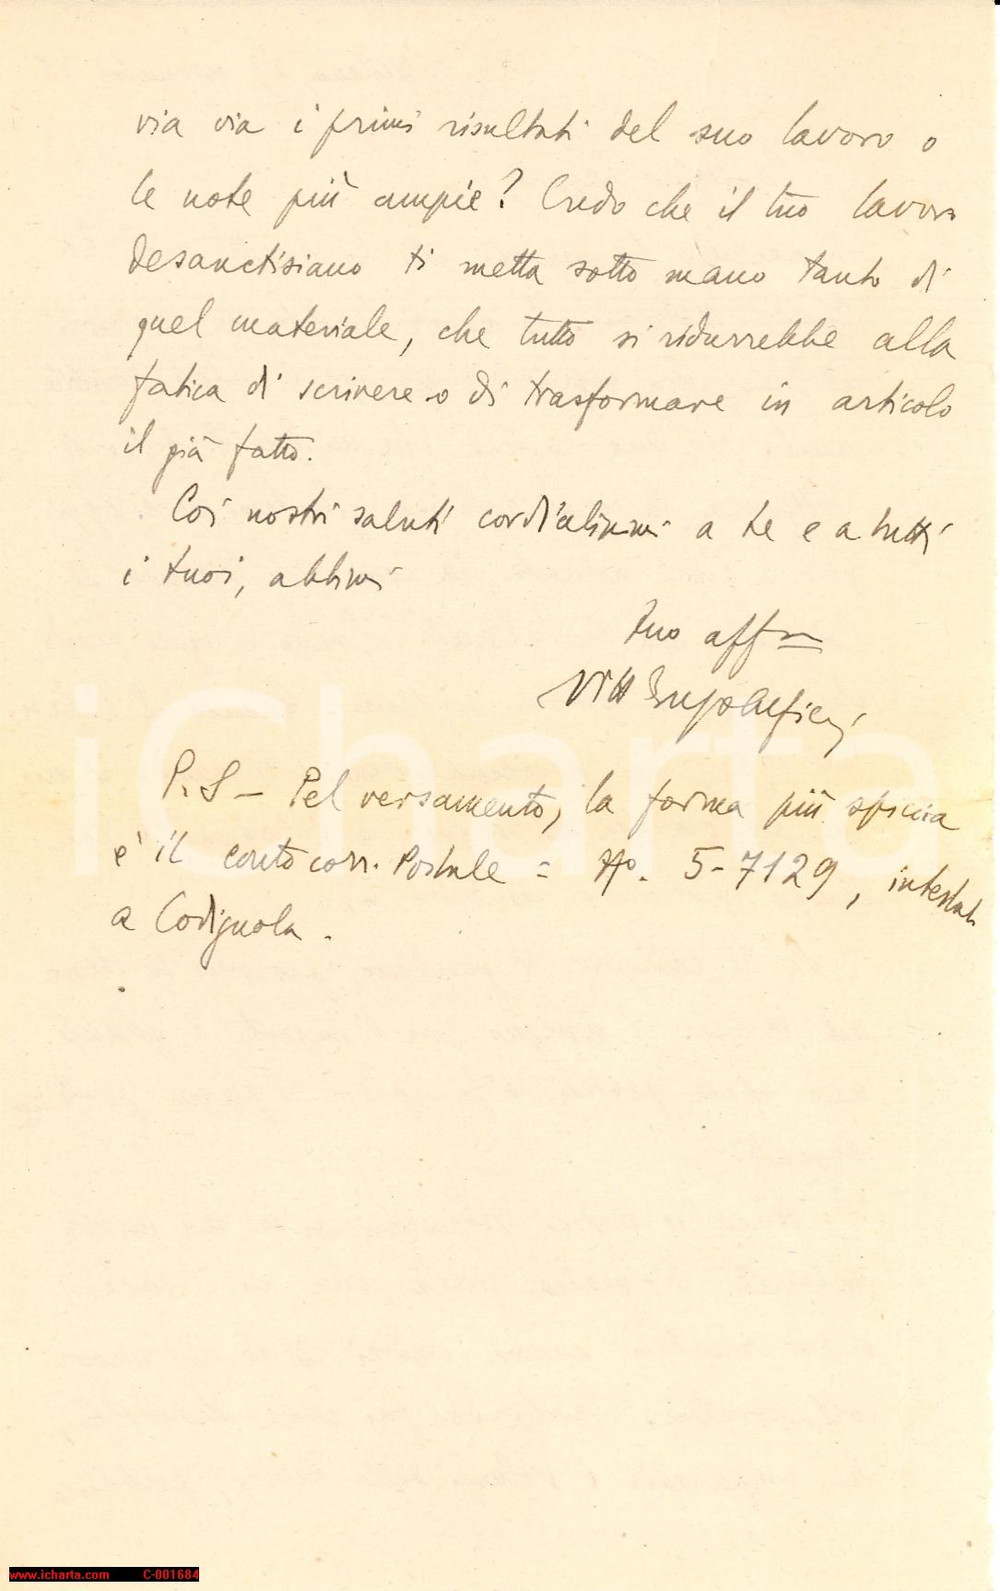 via via i primi risultati del suo lavoro o
le note più ampie? Credo che il tuo lavoro
desanctisiano ti metta sotto mano tanto di
quel materiale, che tutto si ridurrebbe alla
fatica di scrivere o di trasformare in articolo
il già fatto.
Coi nostri saluti cordialissimi a te e a tutti
i tuoi, abbimi
tuo aff
Vitt
P.S - Pel versamento, la forma più spiccia
è il conto corr. Postale = No. 5-7129, intestato
a Codignola.
iCharta
www.icharta.com C-001684